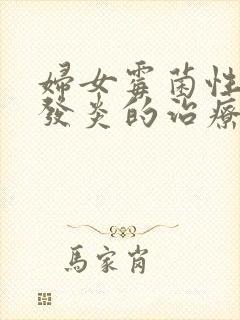 婦女霉菌性
發炎的治療
馬家肖